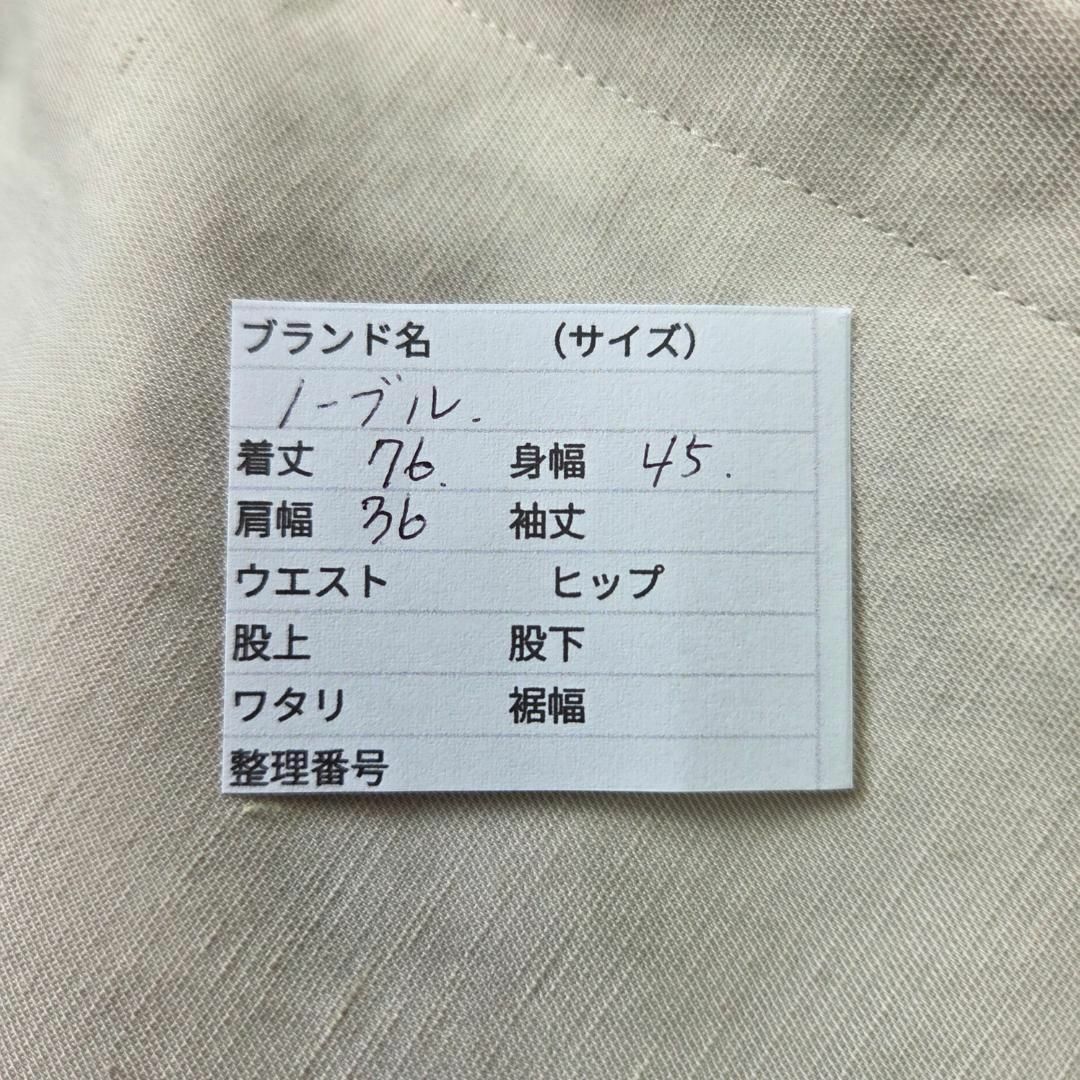 ブランド名 （サイズ）
ノーブル.
着丈 76. 身幅 45.
肩幅 36 袖丈
ウエスト ヒップ
股上 股下
ワタリ 裾幅
整理番号